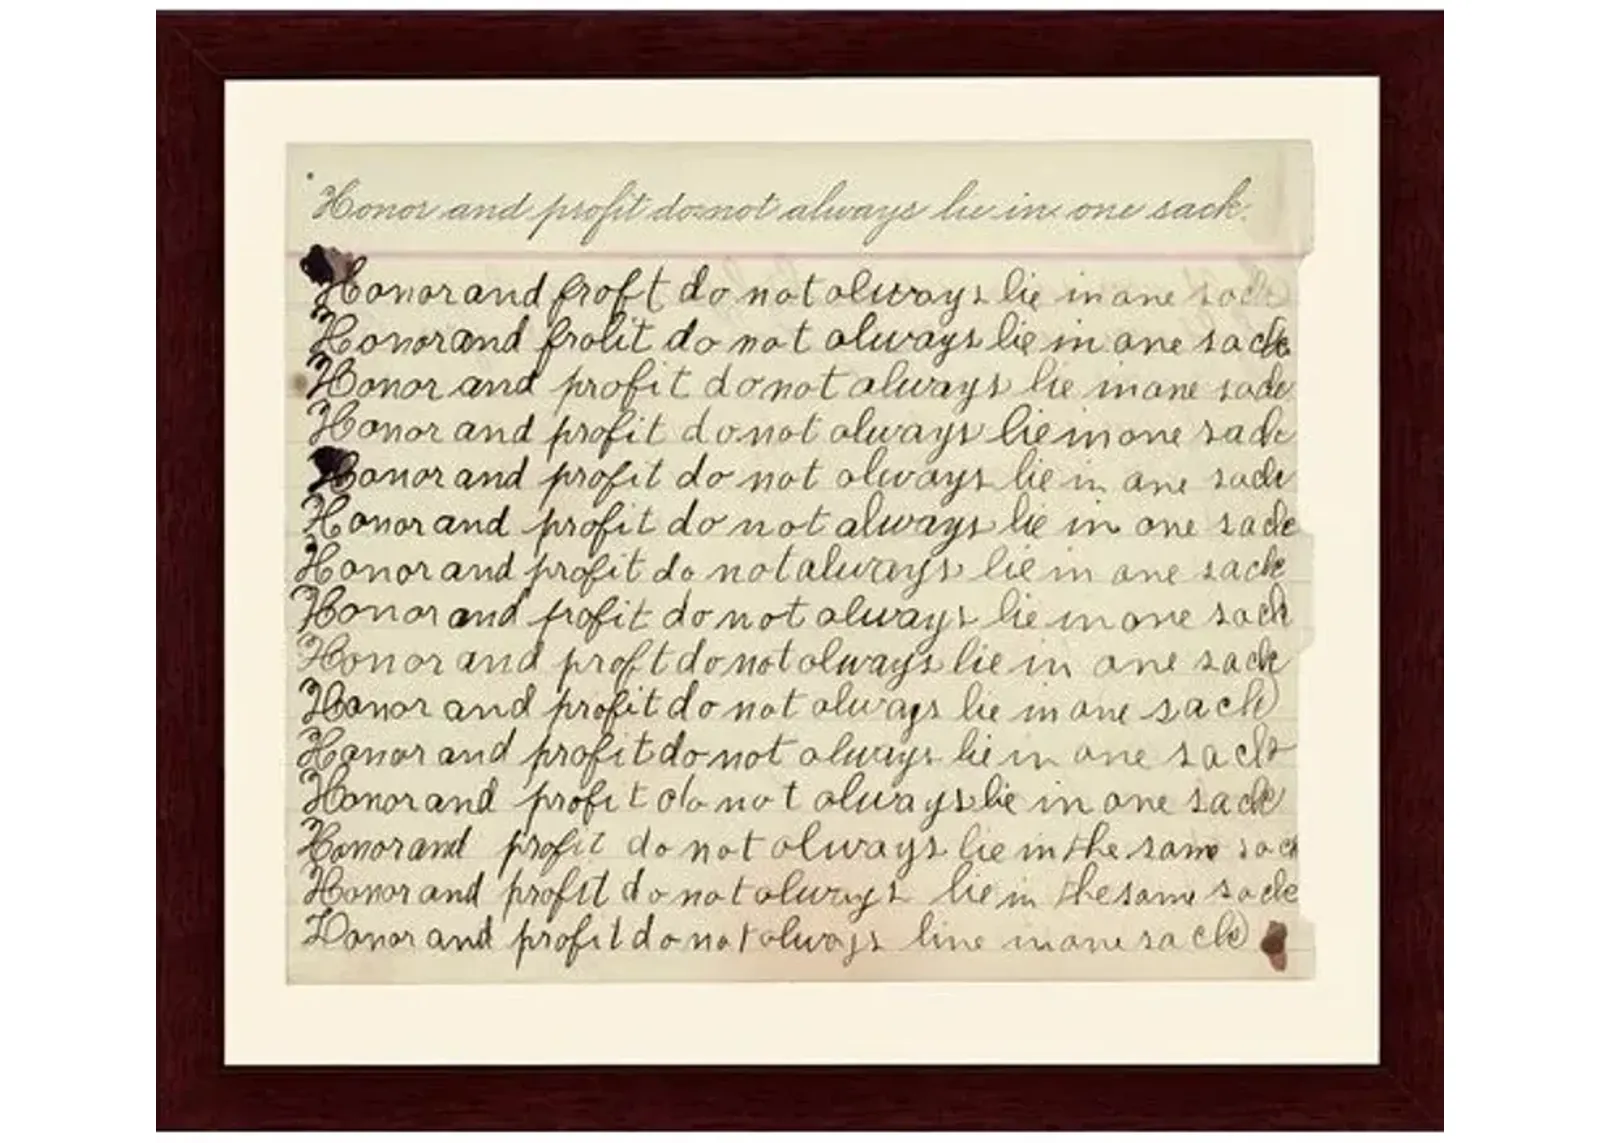 Honor and profit do not always lie in one sack.
Honor and froft do not always lie in one sack
Honor and frolit do not always lie in one sack
Honor and profit do not always lie in one sack
Honor and profit do not always lie in one sack
Honor and profit do not always lie in one sack
Honor and profit do not always lie in one sack
Honor and profit do not always lie in one sack
Honor and profit do not always lie in one sack
Honor and proft do not always lie in one sack
Honor and profit do not always lie in one sack
Honor and profit do not always lie in one sack
Honor and profit do not always lie in one sack
Honor and profit do not always lie in the same sack
Honor and profit do not always lie in the same sack
Honor and profit do not always line in one sack